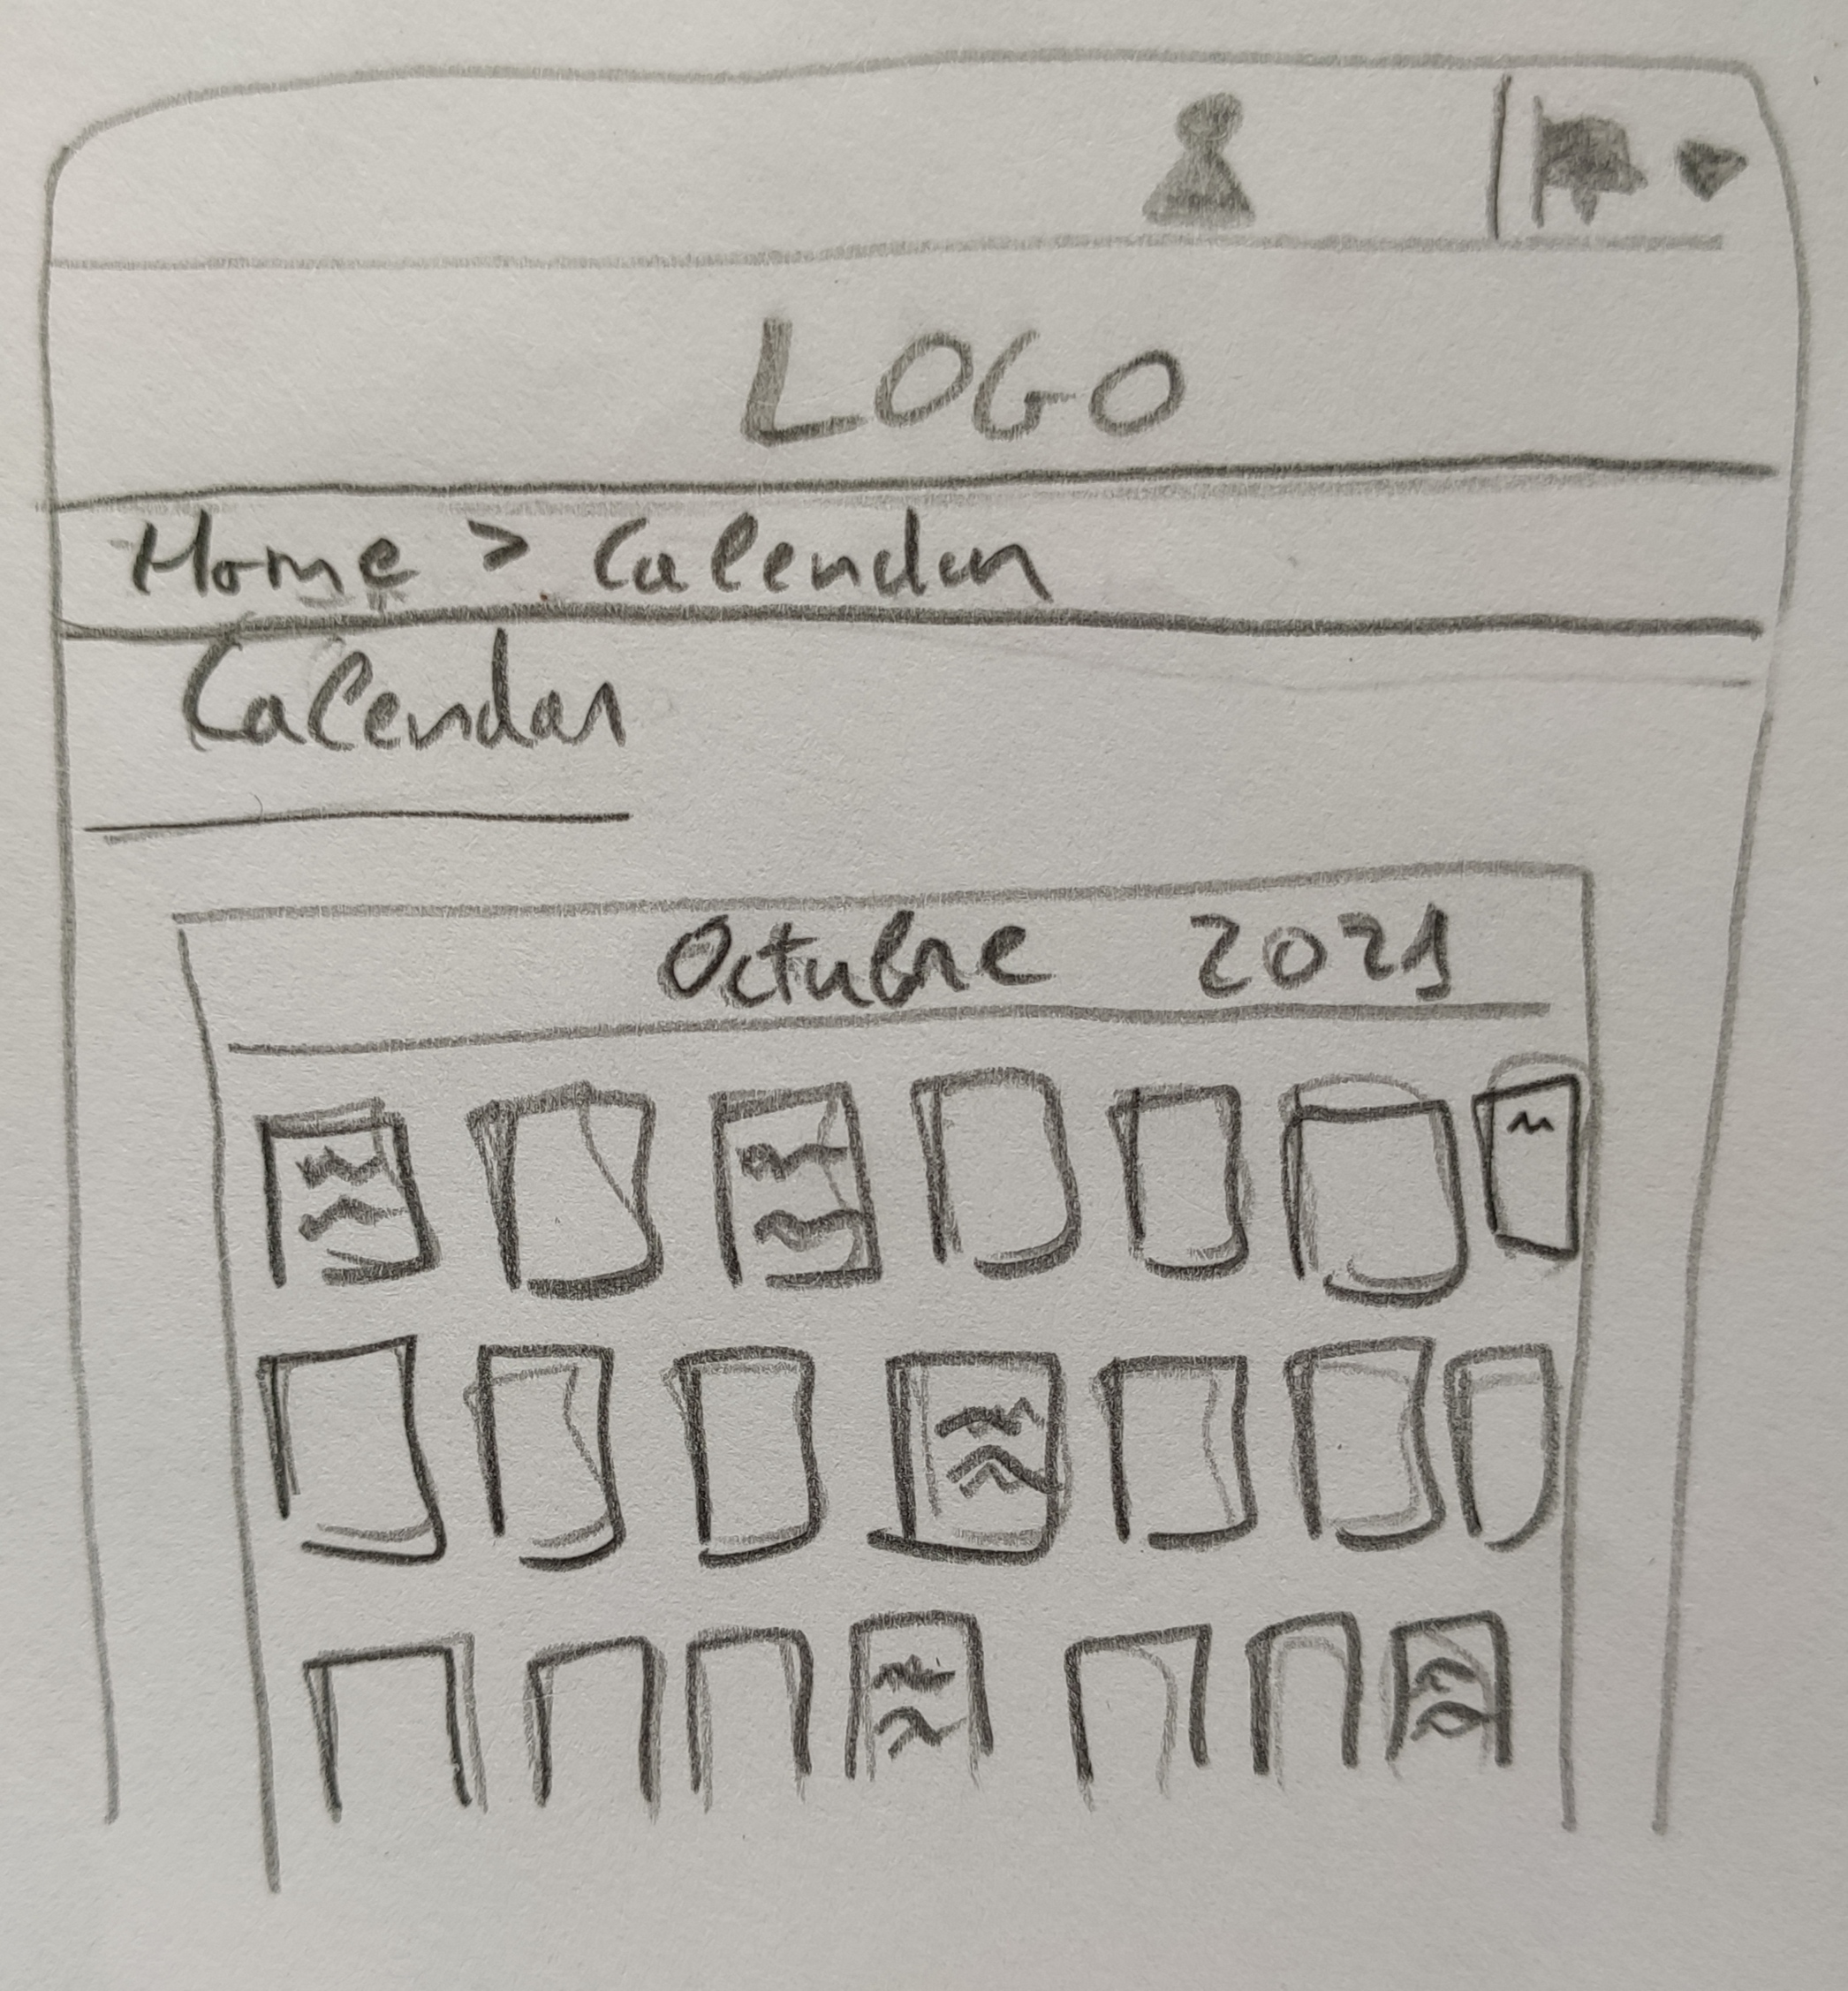 LOGO
Home > Calendar
Calendar
Octubre 2021